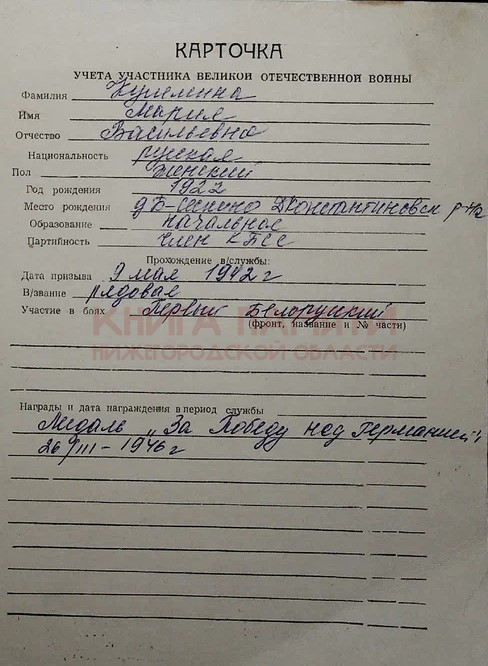 КАРТОЧКА
УЧЕТА УЧАСТНИКА ВЕЛИКОЙ ОТЕЧЕСТВЕННОЙ ВОЙНЫ
Фамилия
Имя Мария
Отчество Васильевна
Национальность русская
Пол Женский
Год рождения 1922
Место рождения д. Б-Сескино Дконстантиновск р-на
Образование начальное
Партийность член КПСС
Прохождение в/службы:
Дата призыва 9 мая 1942 г
В/звание рядовая
Участие в боях Первый Белоруский
(фронт, название и № части)
КНИГА ПАМЯТИ
НИЖЕГОРОДСКОЙ ОБЛАСТИ
Награды и дата награждения в период службы
Медаль „За Победу над Германией"
26/III - 1946 г